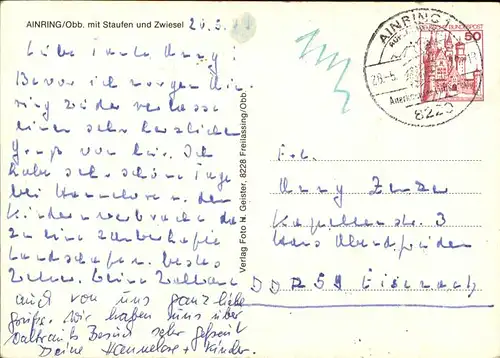 AINRING/Obb. mit Staufen und Zwiesel
Liebe Tante Anny!
Bevor ich morgen Ain-
ring wieder verlasse
einen sehr herzlichen
Gruß von hier. Ich
habe sehr schöne Tage
bei Hannelore u. den
Kindern verbracht da-
zu eine zauberhafte
Landschaft.
Deine
auch von uns ganz liebe
Grüße. Wir haben uns über
Waltrauts Besuch sehr gefreut
Deine Hannelore + Kinder.
Verlag Foto N. Geister, 8228 Freilassing/Obb.
AINRING 1
8229
BUNDESPOST
50
Anny
Kapellenstr. 3
Haus
DDR 59 Eisenach